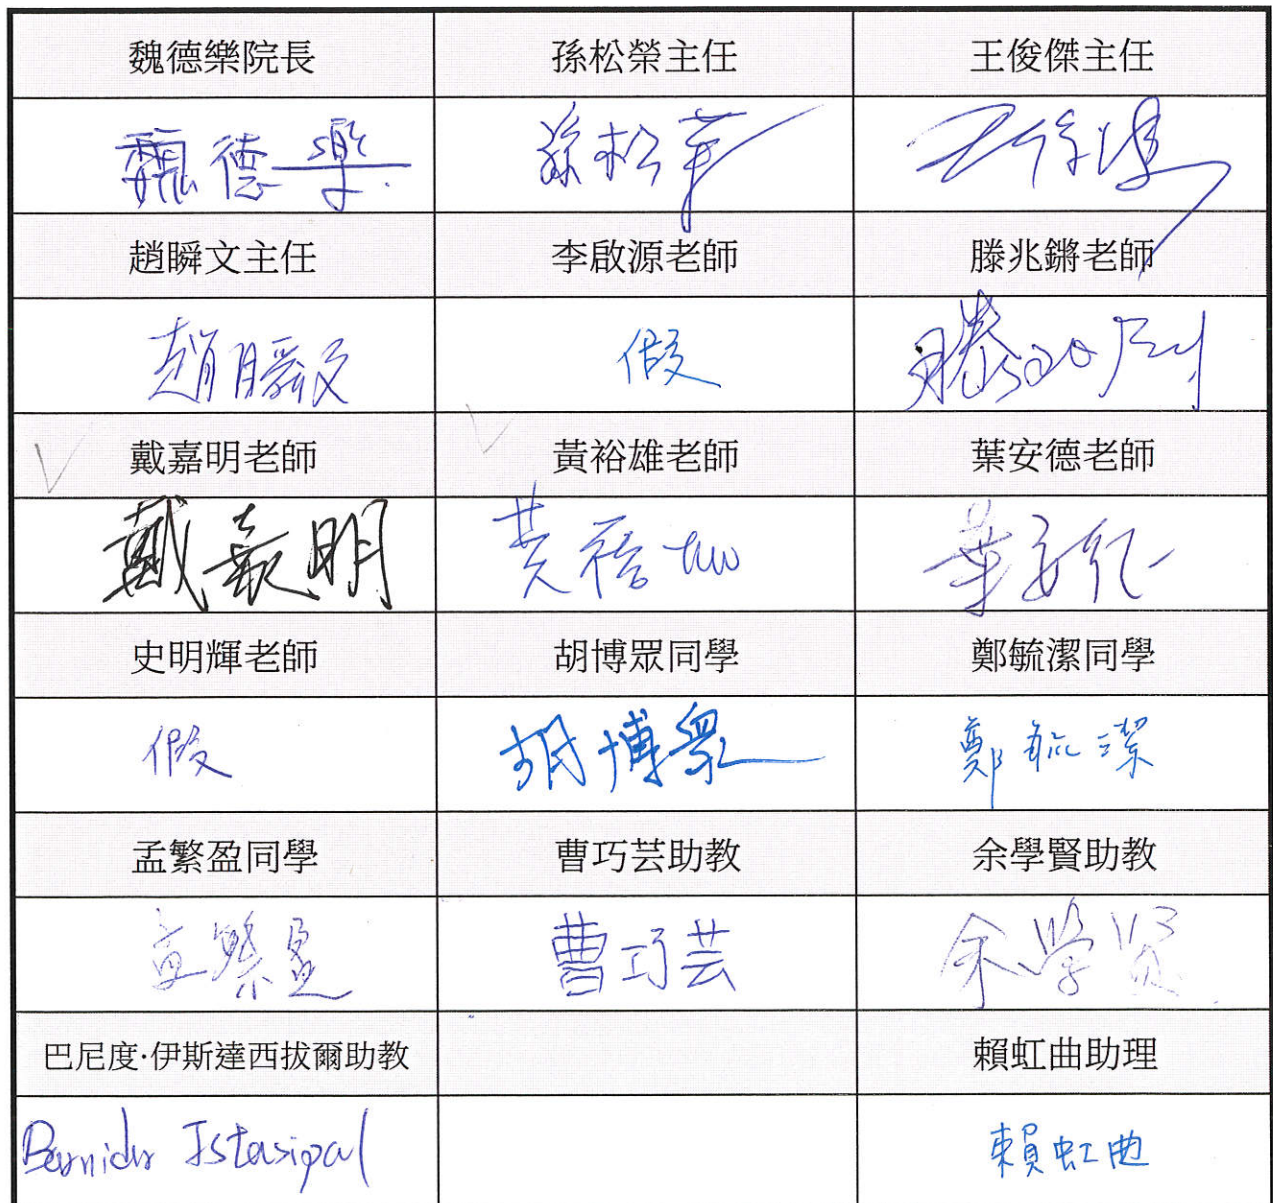 魏德樂院長 孫松榮主任 王俊傑主任
魏德樂 孫松榮 王俊傑
趙瞬文主任 李啟源老師 滕兆鏘老師
趙瞬文 假 滕兆鏘
戴嘉明老師 黃裕雄老師 葉安德老師
戴嘉明 黃裕雄 葉安德
史明輝老師 胡博眾同學 鄭毓潔同學
假 胡博眾 鄭毓潔
孟繁盈同學 曹巧芸助教 余學賢助教
孟繁盈 曹巧芸 余學賢
巴尼度·伊斯達西拔爾助教 賴虹曲助理
Banidu Istasipal 賴虹曲